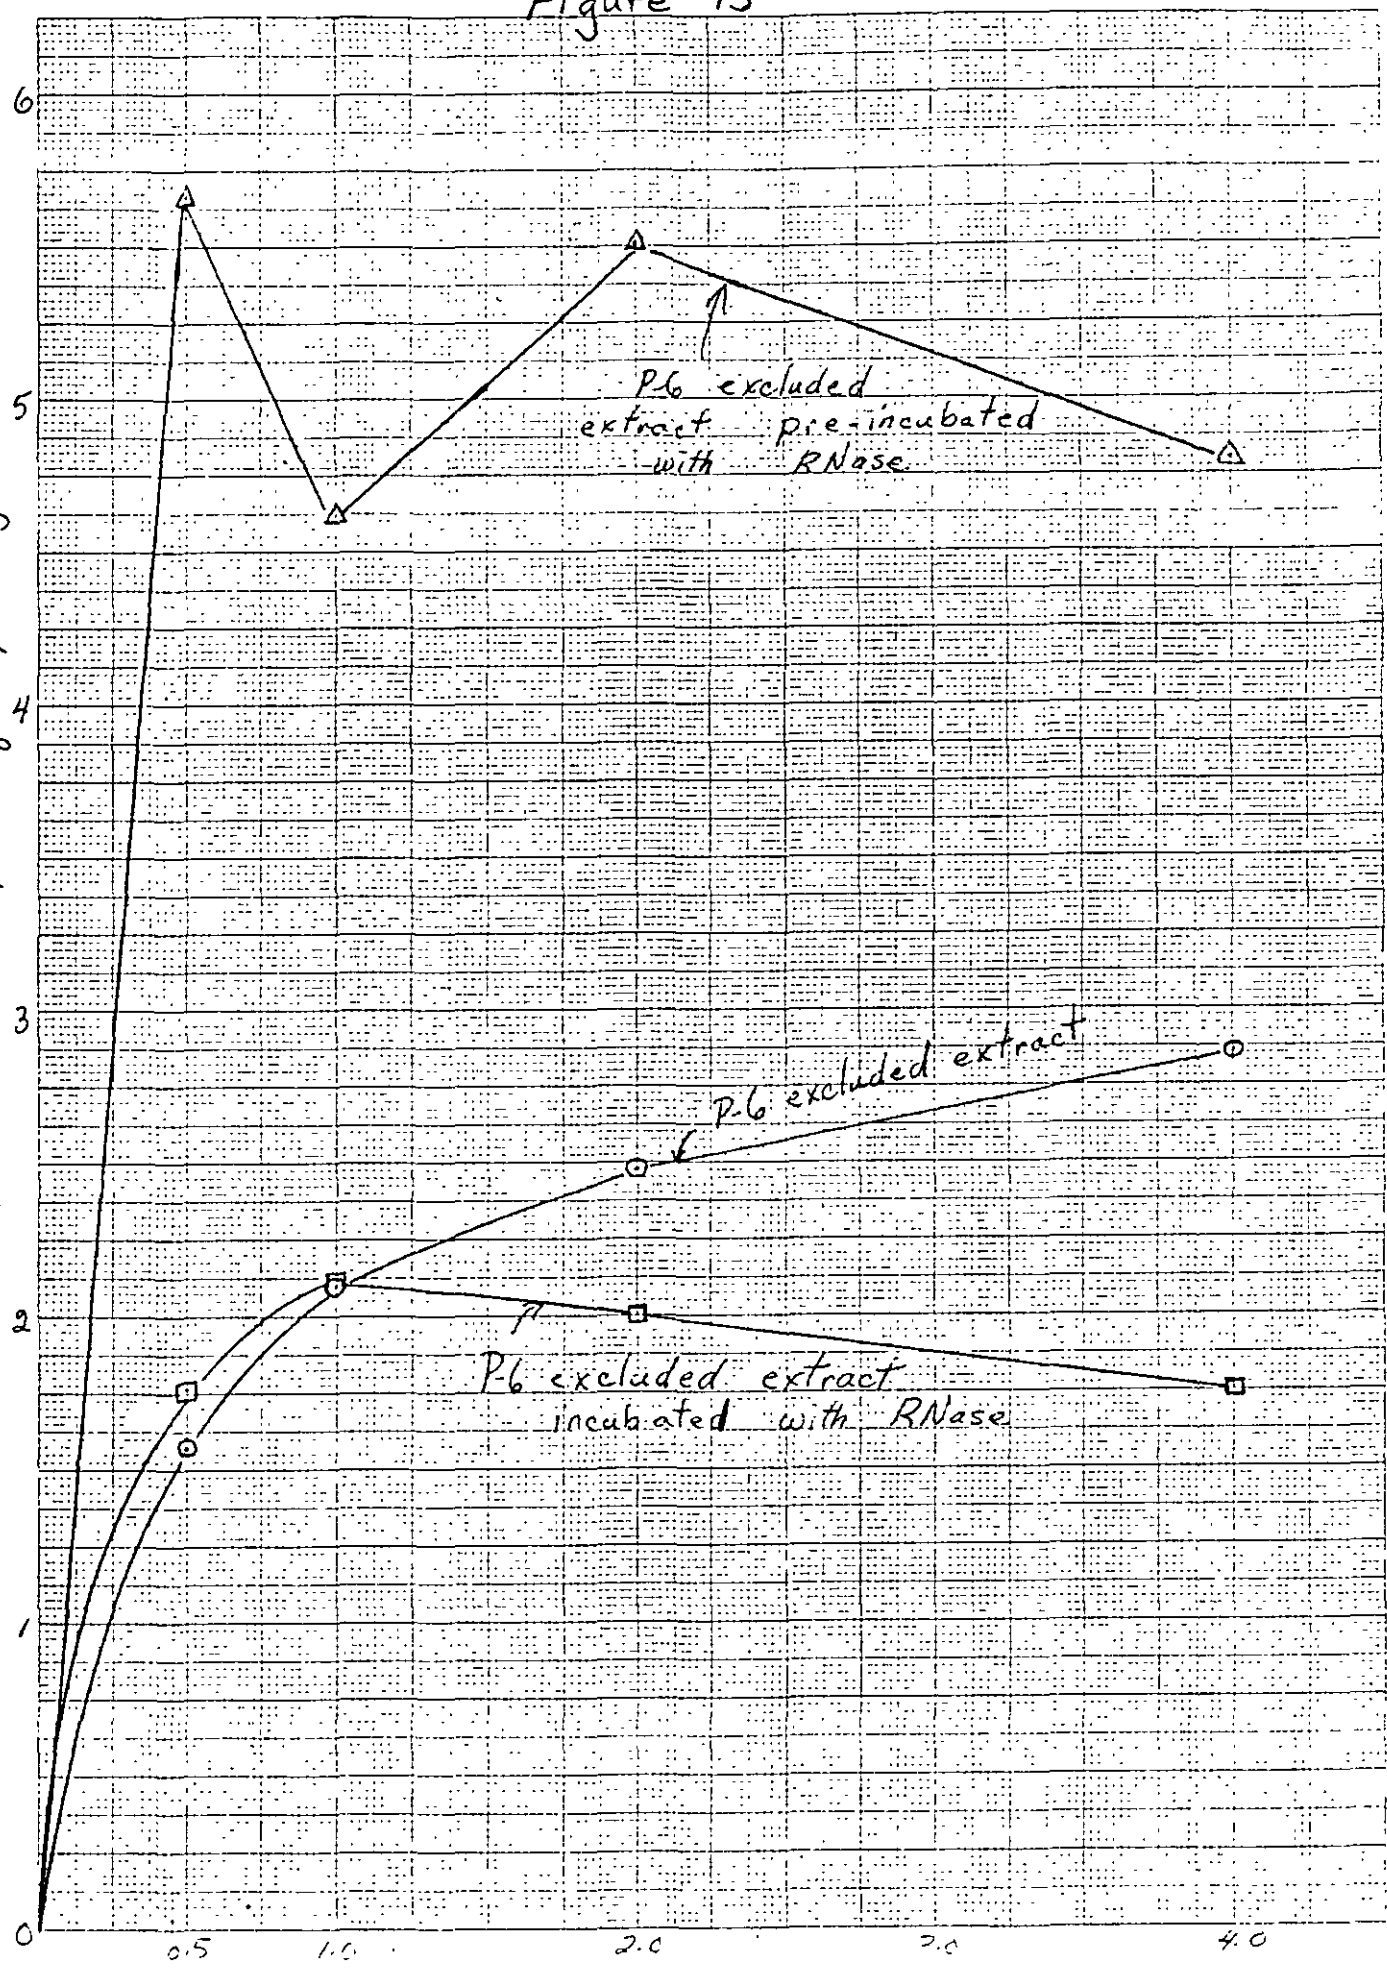 Figure 13
6
5
4
3
2
1
0
P-6 excluded
extract pre-incubated
with RNase
P-6 excluded extract
P-6 excluded extract
incubated with RNase
0.5 1.0 2.0 3.0 4.0